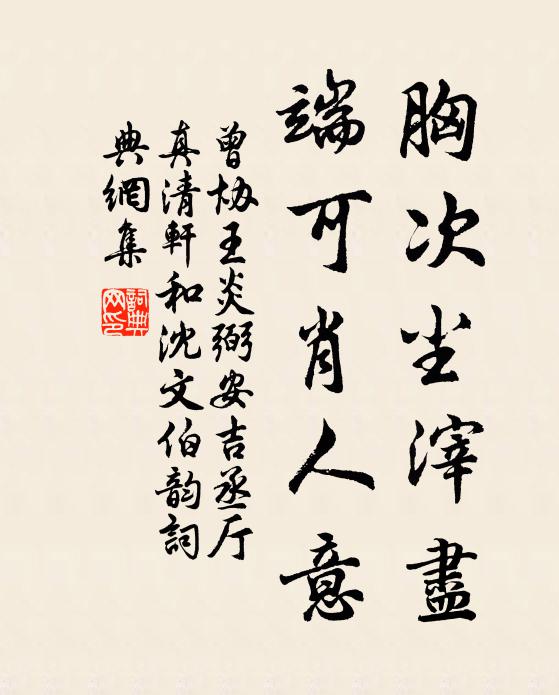 胸次尘滓盡
端可肖人意
曾协王炎弼安吉丞厅
真清軒和沈文伯韵詞
典網集
詞典网印